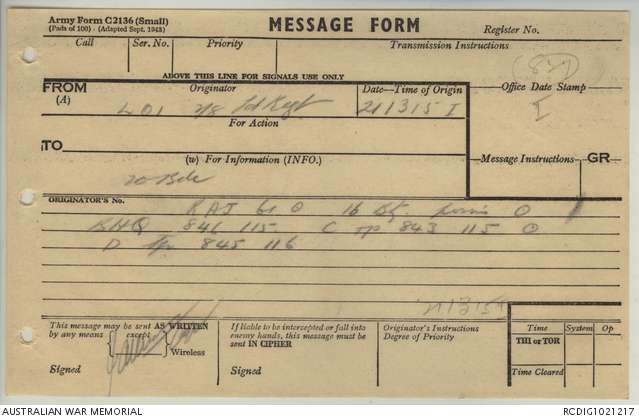 Army Form C2136 (Small)
(Pads of 100) - (Adapted Sept. 1943)
MESSAGE FORM
Register No.
Call Ser. No. Priority Transmission Instructions
ABOVE THIS LINE FOR SIGNALS USE ONLY
FROM
(A)
Originator
Date—Time of Origin
Office Date Stamp
LO1 2/8 Fd Regt 211315 I
I
For Action
TO
(w) For Information (INFO.)
Message Instructions
GR
20 Bde
ORIGINATOR'S No.
O 16 O
BHQ 846 115 C Tp 843 115 O
D Tp 845 116
211315 I
This message may be sent AS WRITTEN
by any means except
Wireless
Signed
If liable to be intercepted or fall into
enemy hands, this message must be
sent IN CIPHER
Signed
Originator's Instructions
Degree of Priority
Time System Op
THI or TOR
Time Cleared
AUSTRALIAN WAR MEMORIAL
RCDIG1021217